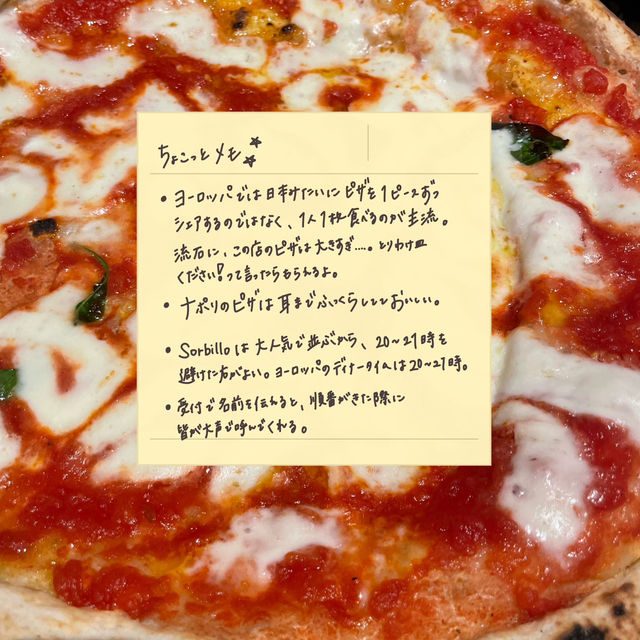 ちょこっとメモ
• ヨーロッパでは日本みたいにピザを1ピースずつ
シェアするのではなく、1人1枚食べるのが主流。
流石に、この店のピザは大きすぎ....。とりわけ皿
ください!って言ったらもらえるよ。
• ナポリのピザは耳までふっくらしてておいしい。
• Sorbilloは大人気で並ぶから、20~21時を
避けた方がよい。ヨーロッパのディナータイムは20~21時。
• 受付で名前を伝えると、順番がきた際に
皆が大声で呼んでくれる。